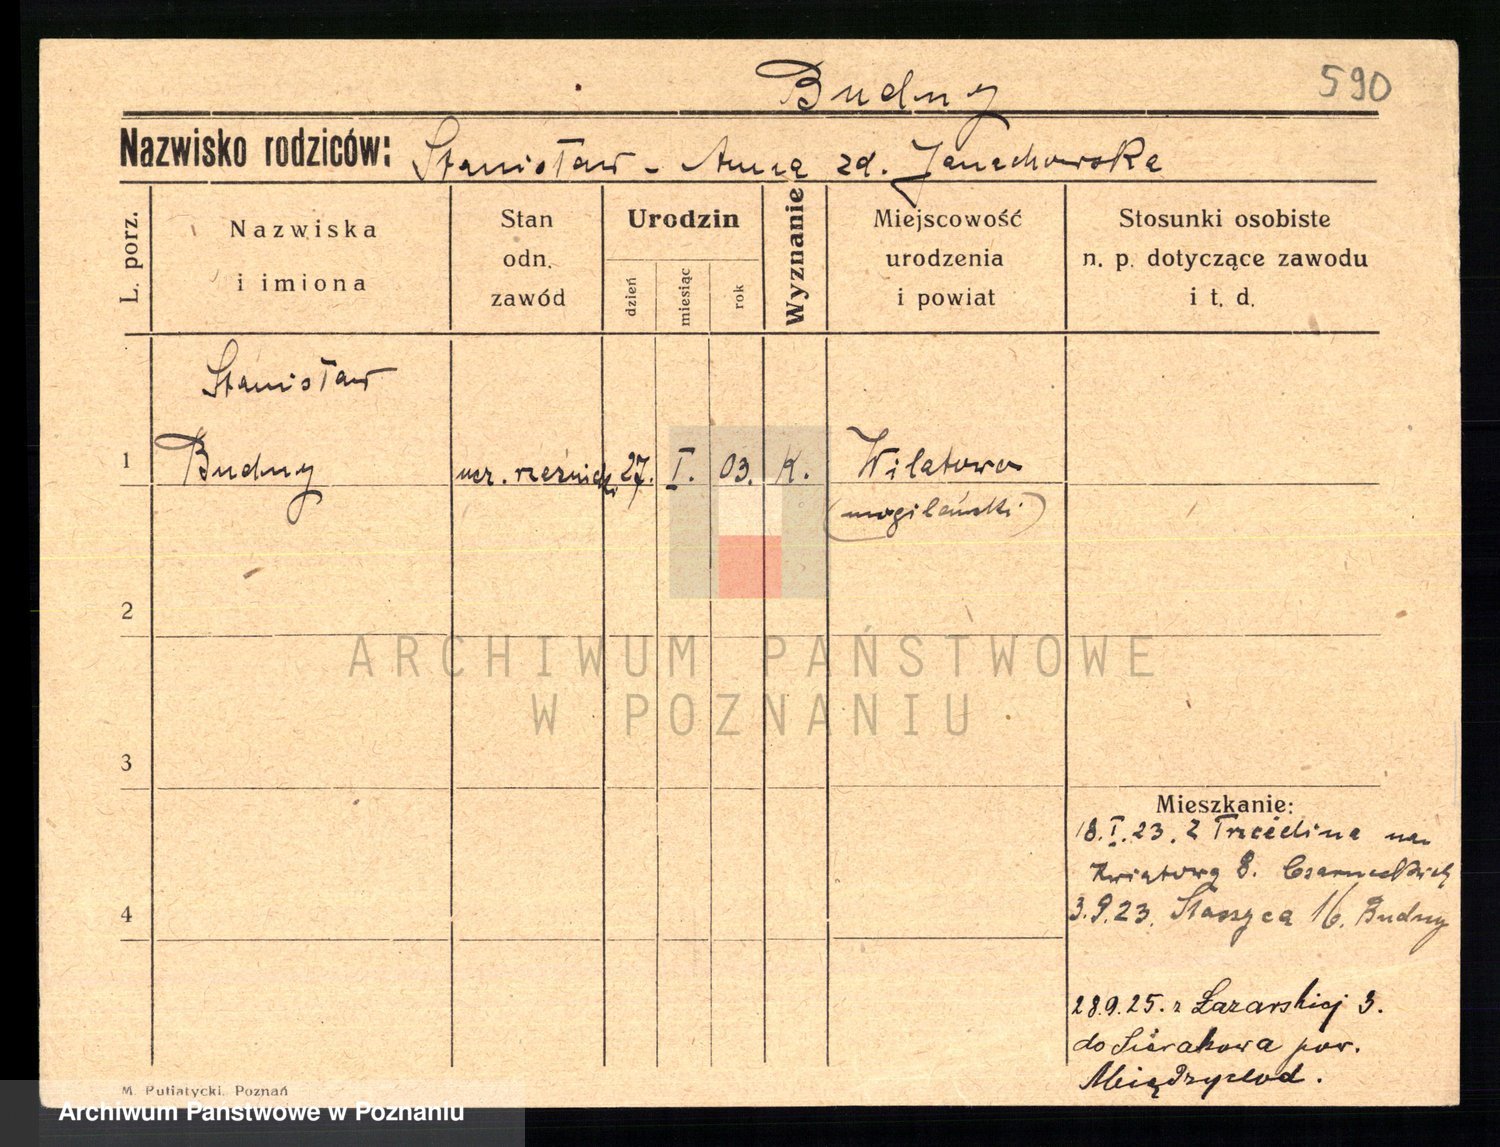 Budny
590
Nazwisko rodziców: Stanisław - Anna zd. Janachowska
L. porz.
Nazwiska
i imiona
Stan
odn.
zawód
Urodzin
dzień
miesiąc
rok
Wyznanie
Miejscowość
urodzenia
i powiat
Stosunki osobiste
n. p. dotyczące zawodu
i t. d.
Stanisław
1 Budny ucz. rzeźnicki 27. I. 03. K. Wilatowo
(mogileński)
2
ARCHIWUM PAŃSTWOWE
W POZNANIU
3
Mieszkanie:
18.I.23. Z Trzcielina na
Kwiatową 8.
4
3.9.23. Staszyca 16. Budny
28.9.25. z Łazarskiej 3.
do Sierakowa pow.
Międzychod.
M. Putiatycki, Poznań
Archiwum Państwowe w Poznaniu